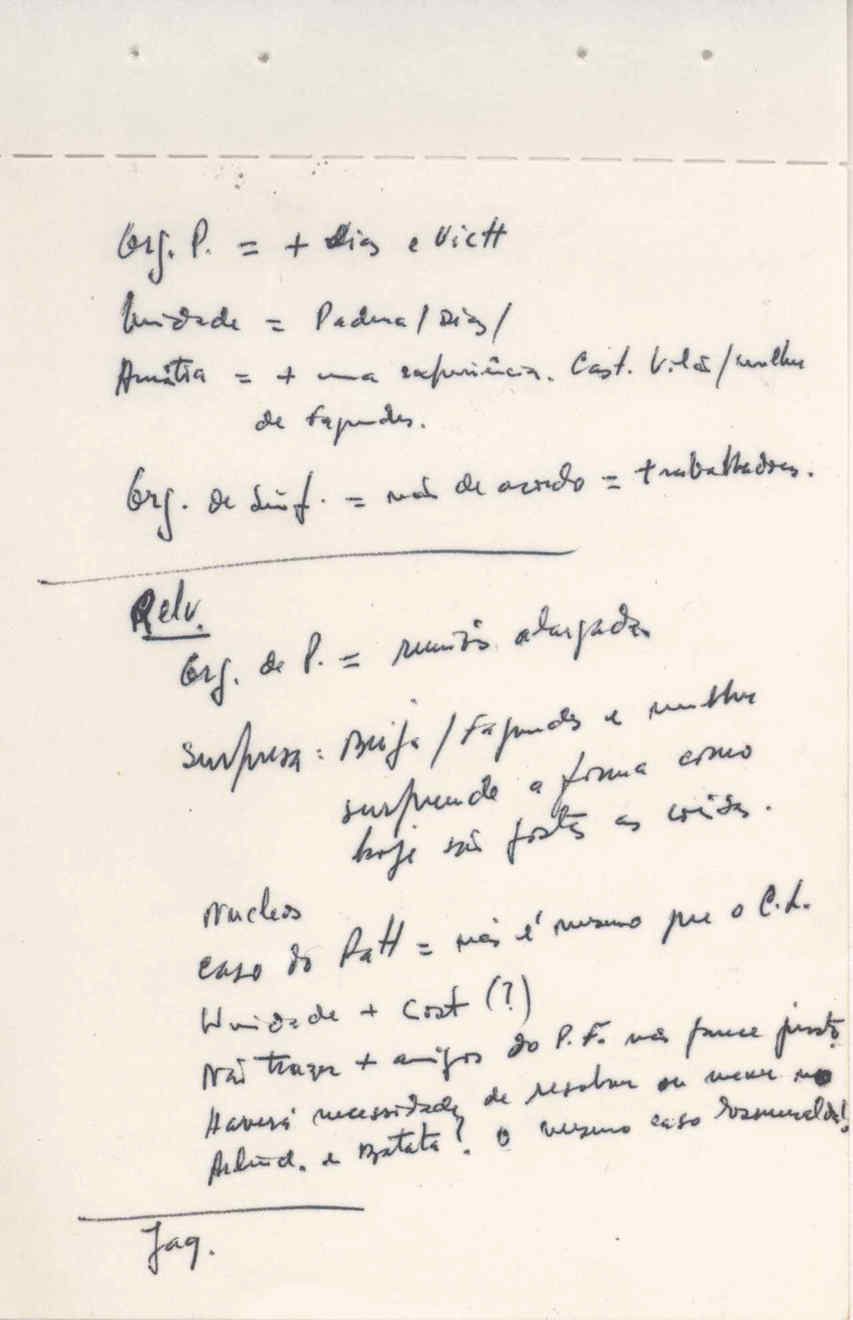 Org. P. = + Dias e VictH
Unidade = Padma / Dias /
Amnistia = + uma experiência. Cast. Vilas / mulher
de Fagundes.
Org. de = não de acordo = trabalhadores.
Relv.
Org. de P. = reunião alargada
Surpresa = Beija / Fagundes e mulher
surpreende a forma como
hoje são postas as coisas.
Nucleos
caso do RatH = não é mesmo que o C.L.
Unidade + Cost (?)
Não trazer + amigos do P.F. não parece justo.
Haverá necessidade de resolver ou mexer no
e Batata? O mesmo caso Esmeralda!
Jaq.